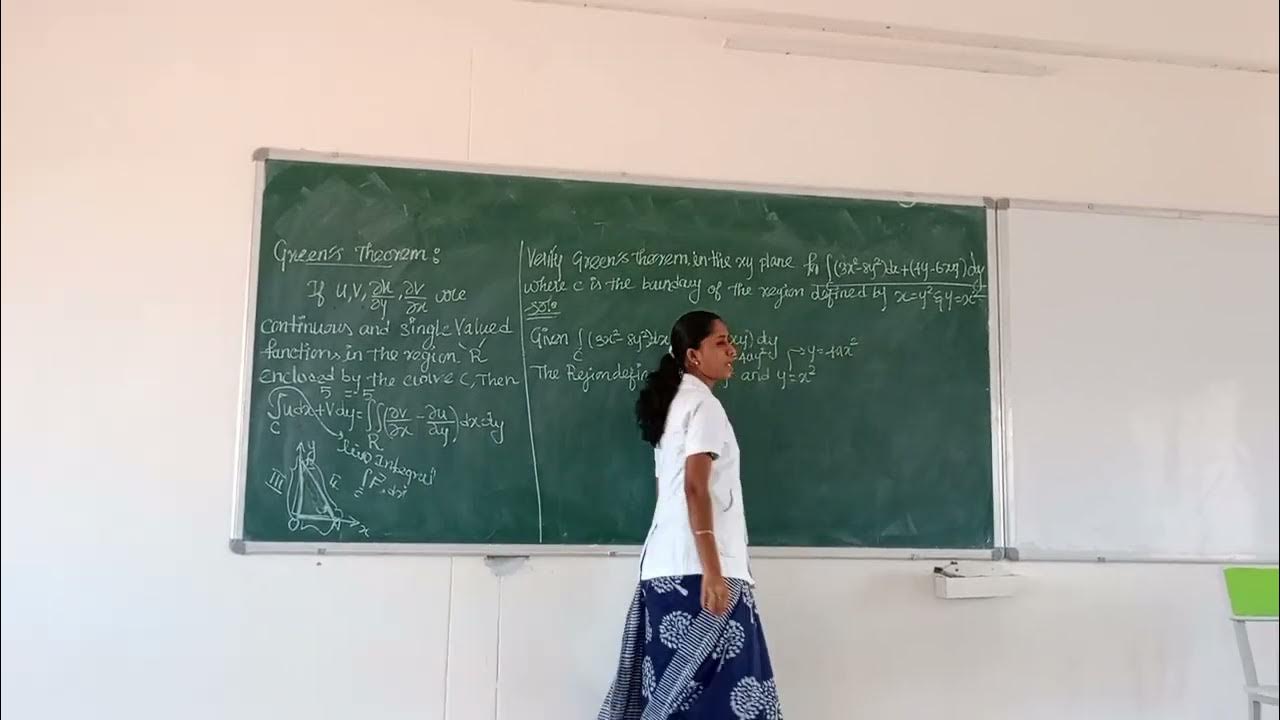 Green's Theorem:
If u,v, ∂u/∂y, ∂v/∂x are
continuous and single valued
functions in the region 'R'
enclosed by the curve C, Then
5 = 5
∫_C u dx + v dy = ∬_R (∂v/∂x - ∂u/∂y) dx dy
line Integral
∫_C F . dr
y
III II
O A x
Verify Green's theorem in the xy plane for ∫(3x²-8y²)dx+(4y-6xy)dy
where C is the boundary of the region defined by x=y², y=x²
Soln
Given ∫_C (3x²-8y²)dx xy)dy
4ay² → y=4ax²
The Region defin and y=x²